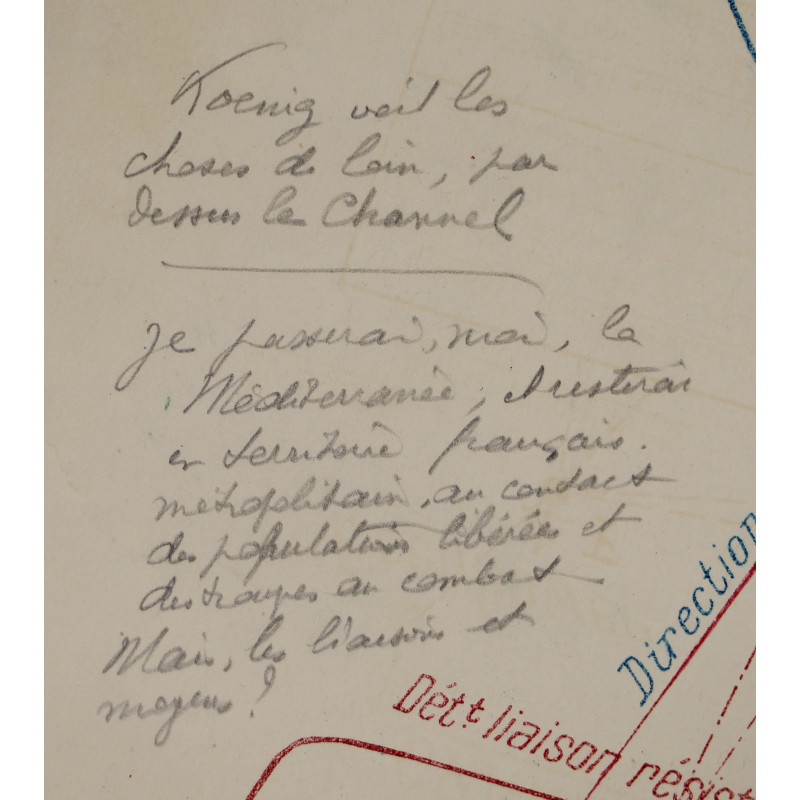 Koenig voit les
choses de loin, par
dessus le Channel
Je passerai, moi, la
Méditerranée, et resterai
en territoire français
métropolitain, au contact
des populations libérées et
des troupes au combat
Mais, les liaisons et
moyens ?
Direction
Dét.t liaison résist